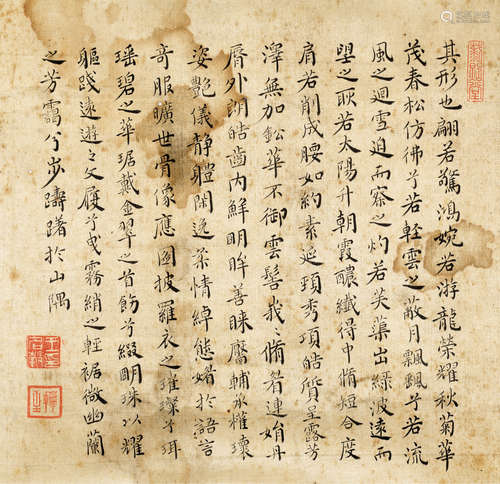 其形也翩若驚鴻婉若游龍榮耀秋菊華
茂春松仿彿兮若輕雲之蔽月飄飄兮若流
風之迴雪迫而察之灼若芙蕖出綠波遠而
望之皎若太陽升朝霞醲纖得中脩短合度
肩若削成腰如約素延頸秀項皓質呈露芳
澤無加鉛華不御雲髻峩〻脩眉連娟丹
脣外朗皓齒內鮮明眸善睞靨輔承權瓌
姿艷儀靜體閑逸柔情綽態媚於語言
奇服曠世骨像應圖披羅衣之璀璨兮珥
瑶碧之華琚戴金翠之首飾兮綴明珠以耀
軀踐遠遊之文履兮曳霧綃之輕裾微幽蘭
之芳靄兮步躊躇於山隅